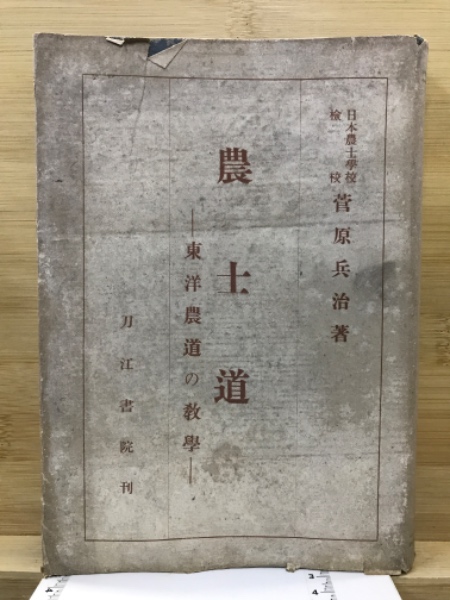 日本農士學校
檢校
菅原兵治著
農士道
―東洋農道の教學―
刀江書院刊
3
4